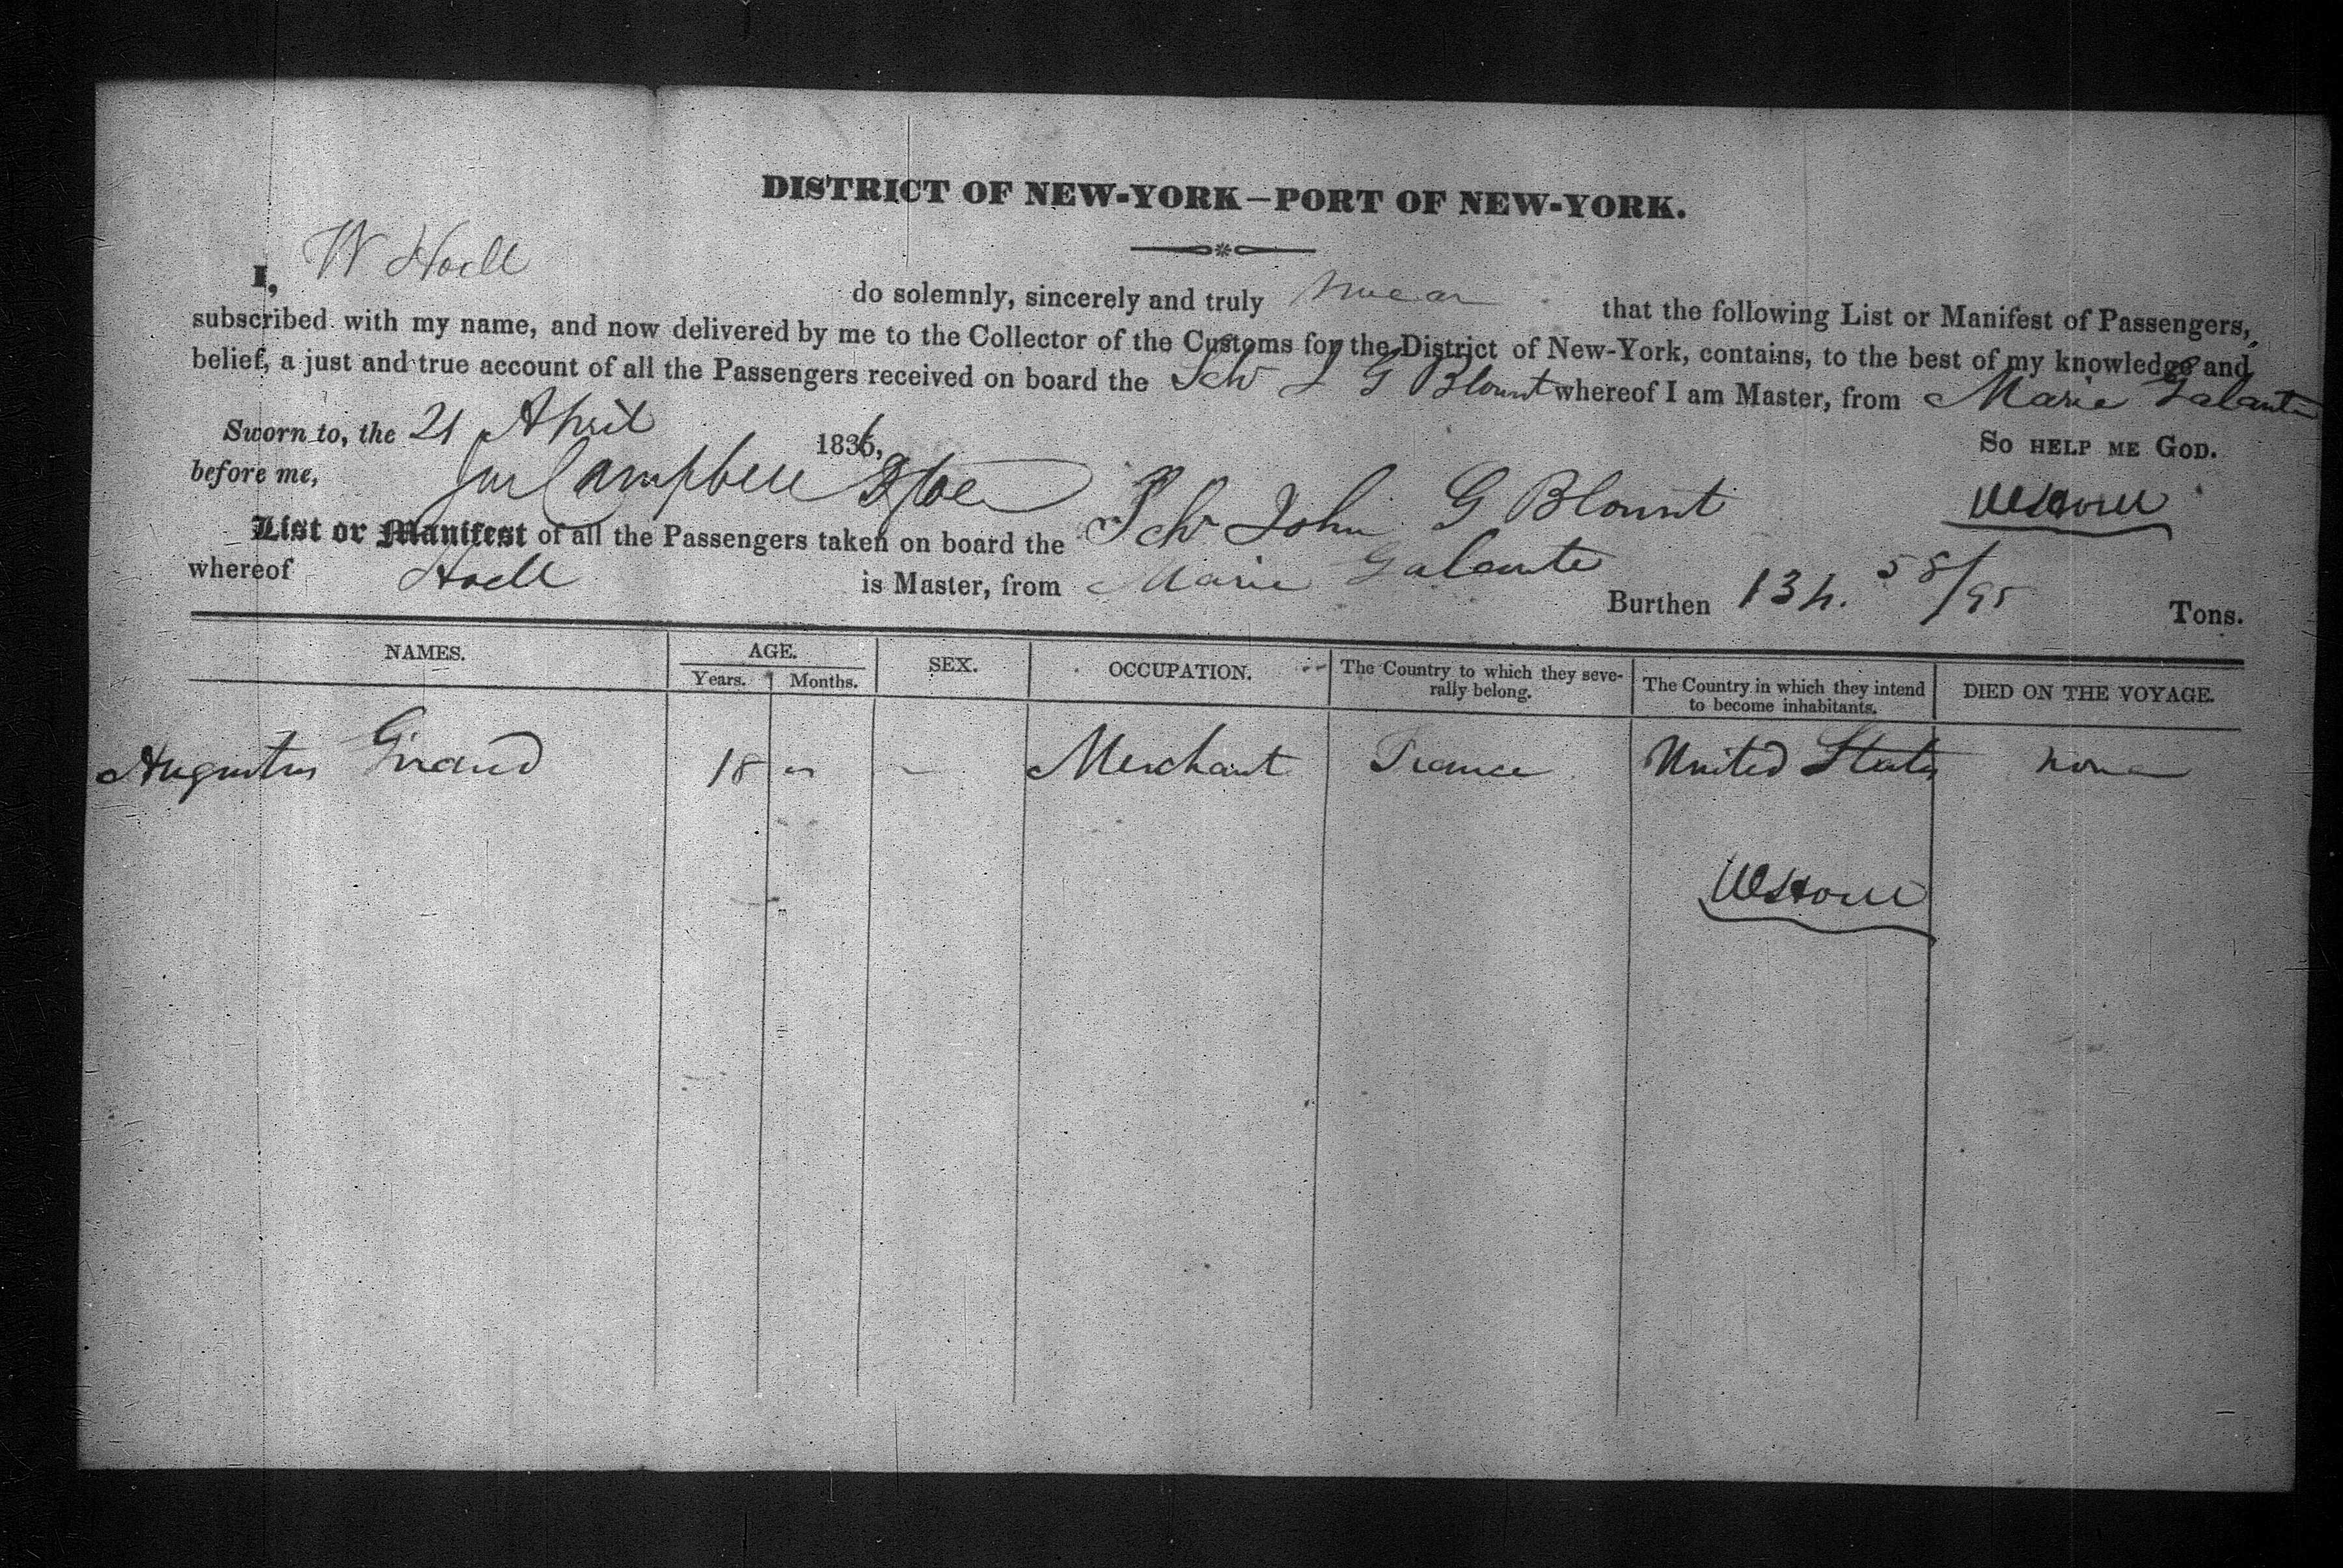 DISTRICT OF NEW-YORK—PORT OF NEW-YORK.
I, W Hoell do solemnly, sincerely and truly swear that the following List or Manifest of Passengers,
subscribed with my name, and now delivered by me to the Collector of the Customs for the District of New-York, contains, to the best of my knowledge and
belief, a just and true account of all the Passengers received on board the Schr J G Blount whereof I am Master, from Marie Galante
Sworn to, the 21 April 1836, So help me God.
before me, Campbell
List or Manifest of all the Passengers taken on board the Schr John G Blount
whereof Hoell is Master, from Marie Galante Burthen 134. 58/95 Tons.
NAMES. AGE. SEX. OCCUPATION. The Country to which they seve-
rally belong. The Country in which they intend
to become inhabitants. DIED ON THE VOYAGE.
Years. Months.
Augustus Giraud 18 Merchant France United States none
W Hoell